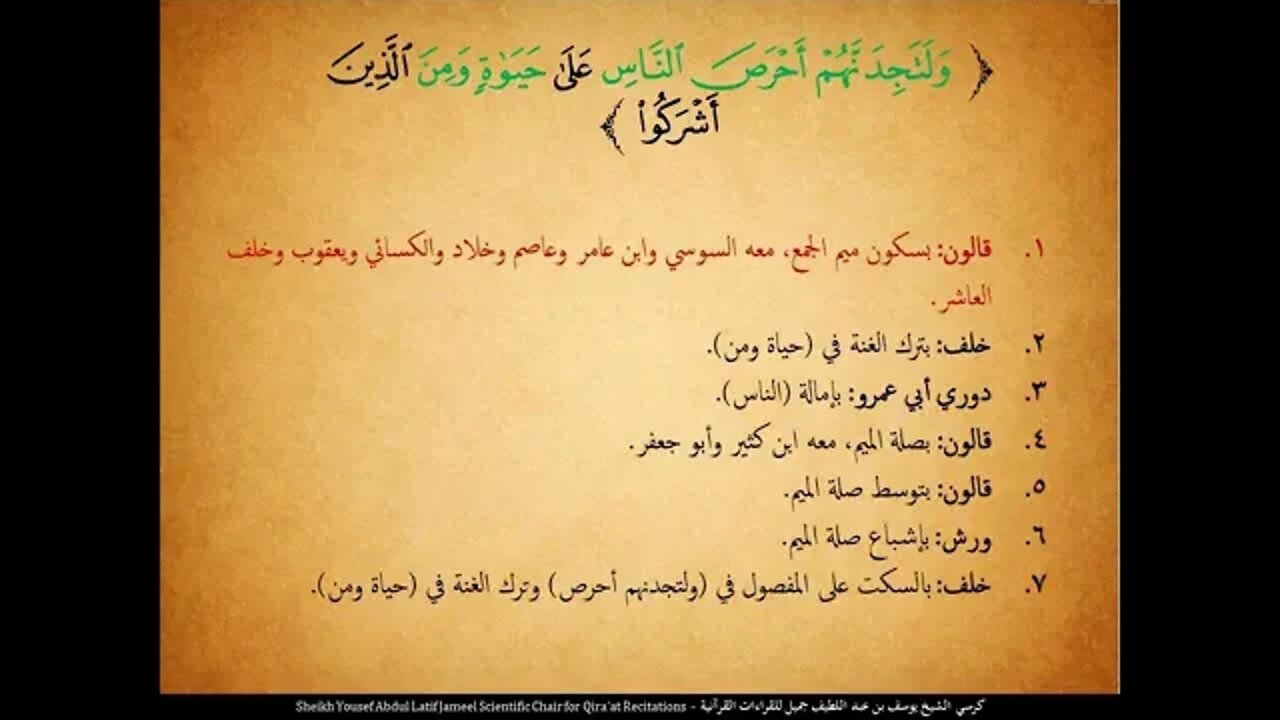 ﴿ وَلَتَجِدَنَّهُمْ أَحْرَصَ ٱلنَّاسِ عَلَىٰ حَيَوٰةٍ وَمِنَ ٱلَّذِينَ
أَشْرَكُوا۟ ﴾
١. قالون: بسكون ميم الجمع، معه السوسي وابن عامر وعاصم وخلاد والكسائي ويعقوب وخلف
العاشر.
٢. خلف: بترك الغنة في (حياة ومن).
٣. دوري أبي عمرو: بإمالة (الناس).
٤. قالون: بصلة الميم، معه ابن كثير وأبو جعفر.
٥. قالون: بتوسط صلة الميم.
٦. ورش: بإشباع صلة الميم.
٧. خلف: بالسكت على المفصول في (ولتجدنهم أحرص) وترك الغنة في (حياة ومن).
كرسي الشيخ يوسف بن عبد اللطيف جميل للقراءات القرآنية - Sheikh Yousef Abdul Latif Jameel Scientific Chair for Qira'at Recitations